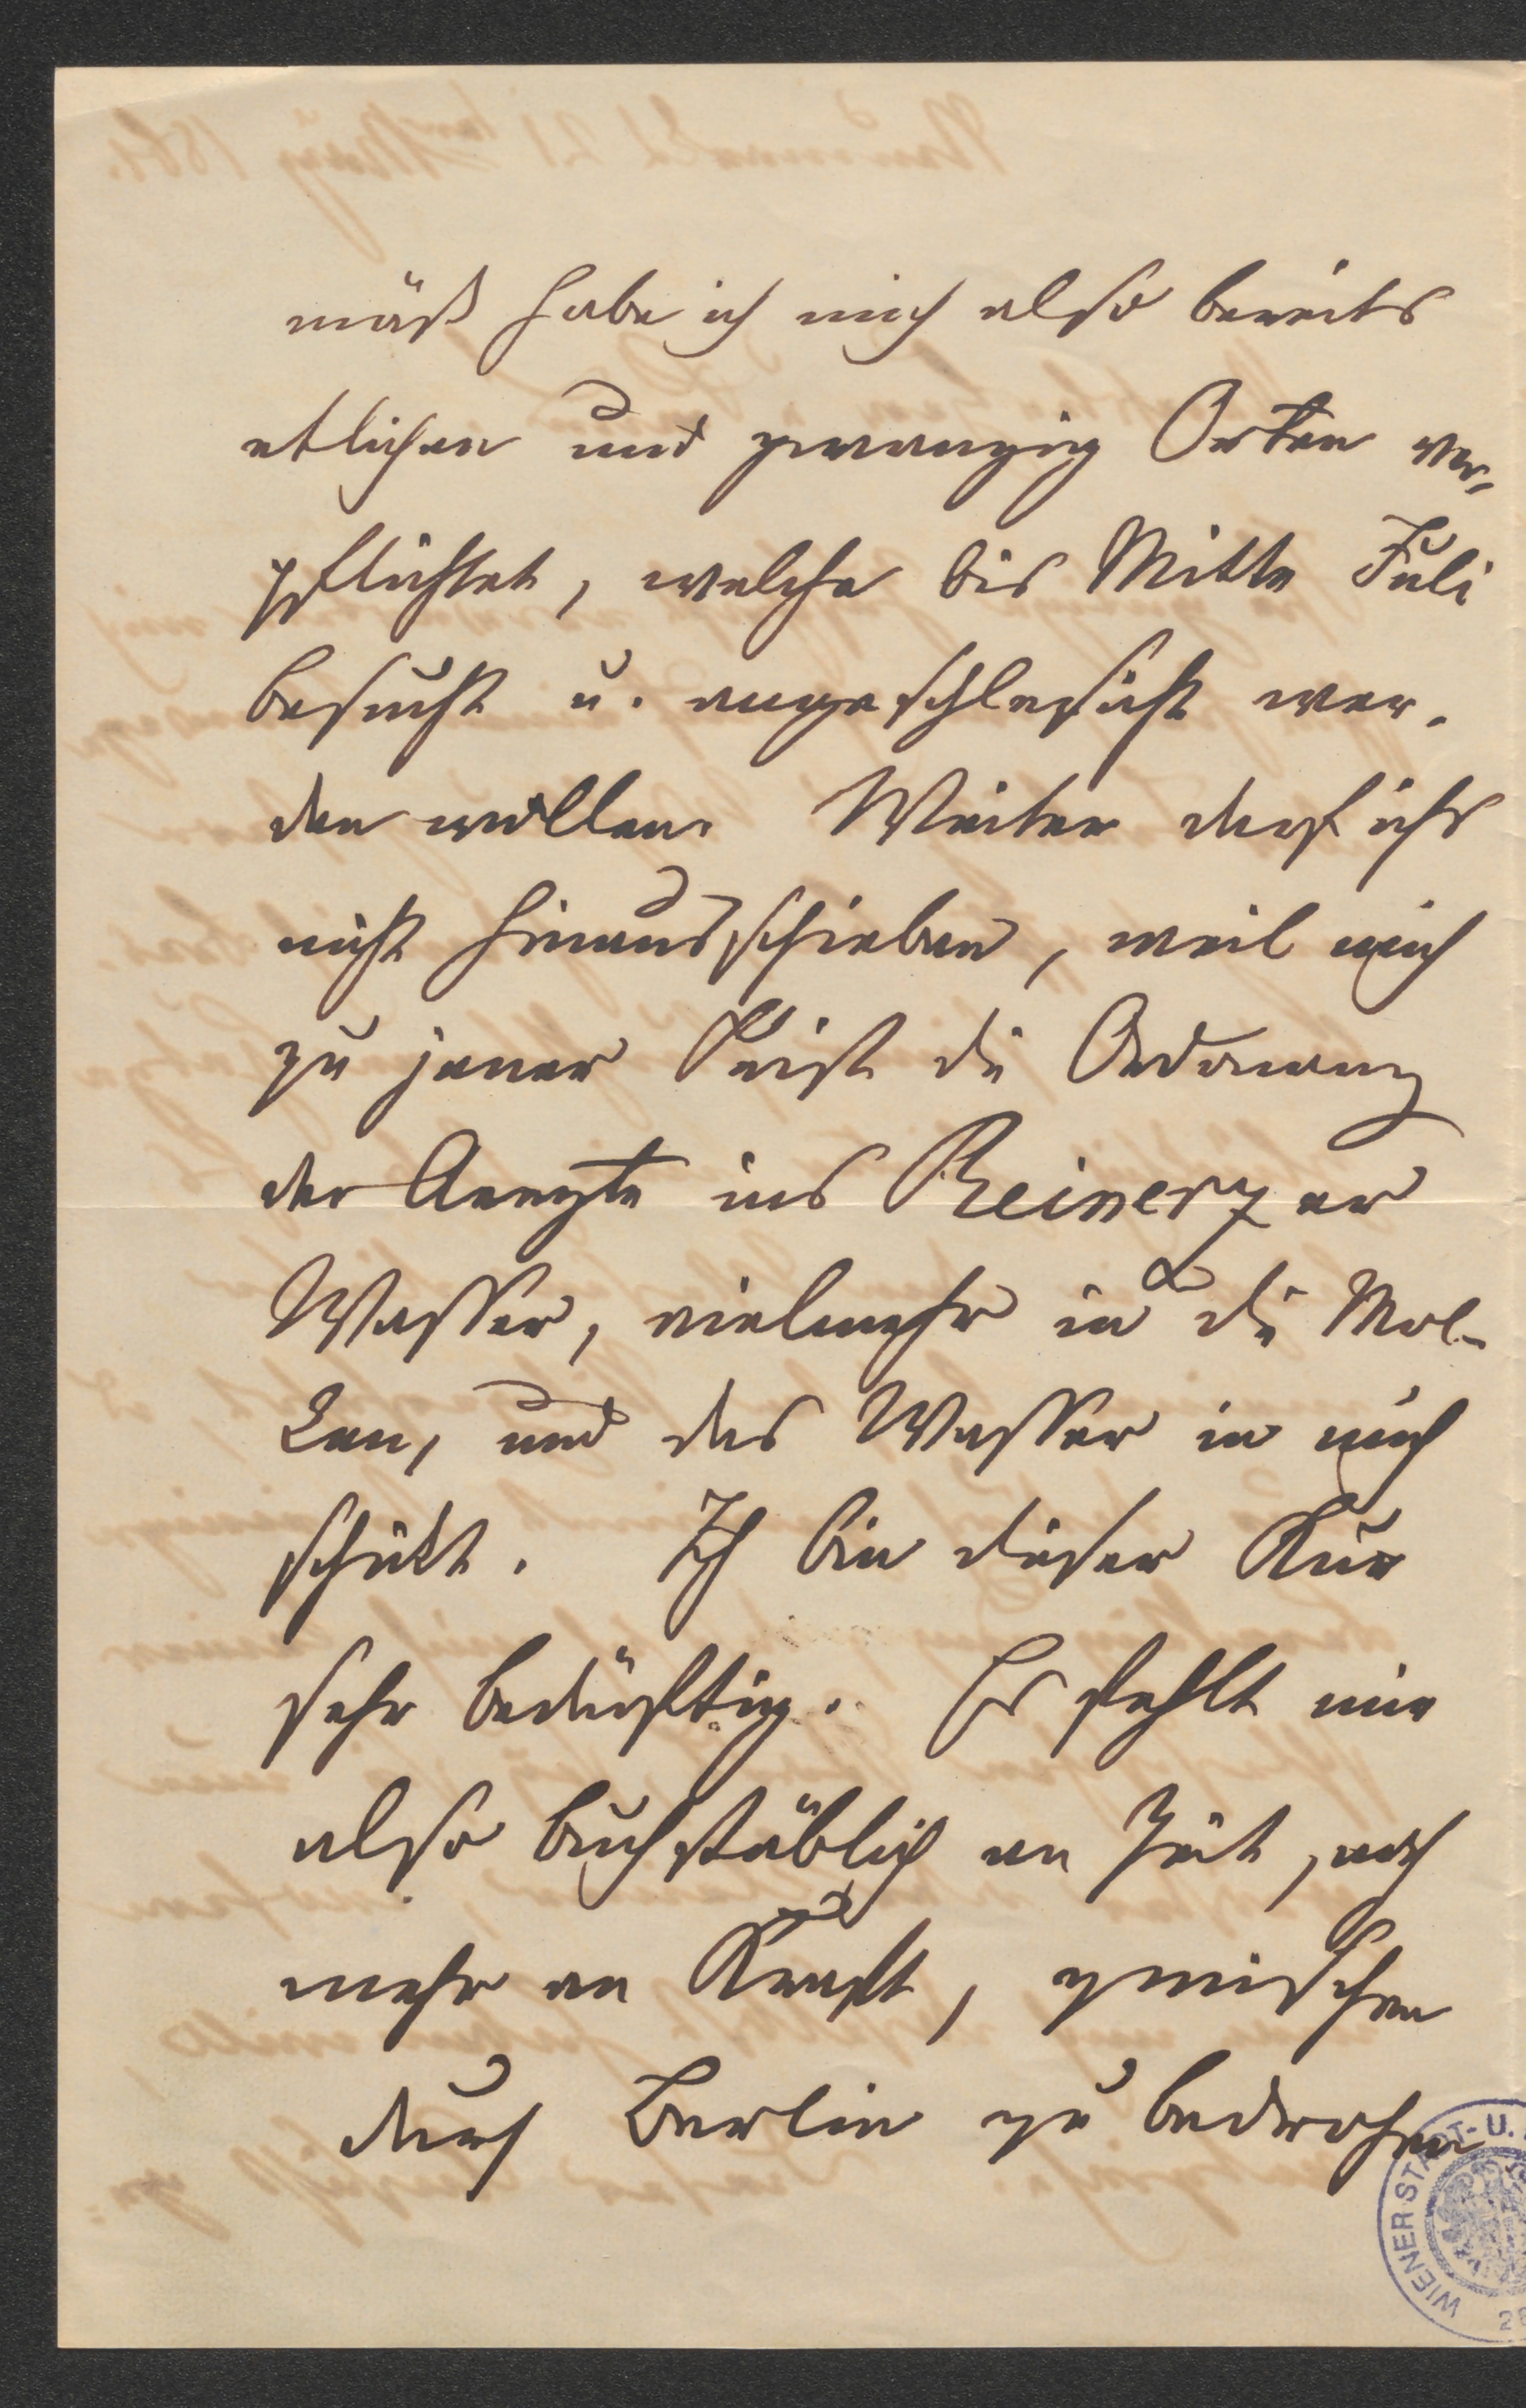 mäß habe ich mich also bereits
etlichen und zwanzig Orten ver-
pflichtet, welche bis Mitte Juli
besucht u. angeschlesicht wer-
den wollen. Weiter darf ichs
nicht hinausschieben, weil mich
zu jener Frist die Ordnung
der Aerzte ins Reinerzer
Wasser, vielmehr in die Mol-
ken, und das Wasser in mich
schickt. Ich bin dieser Kur
sehr bedürftig. Es fehlt mir
also buchstäblich an Zeit, noch
mehr an Kraft, zwischen
durch Berlin zu bedrohen
WIENER STADT- U.